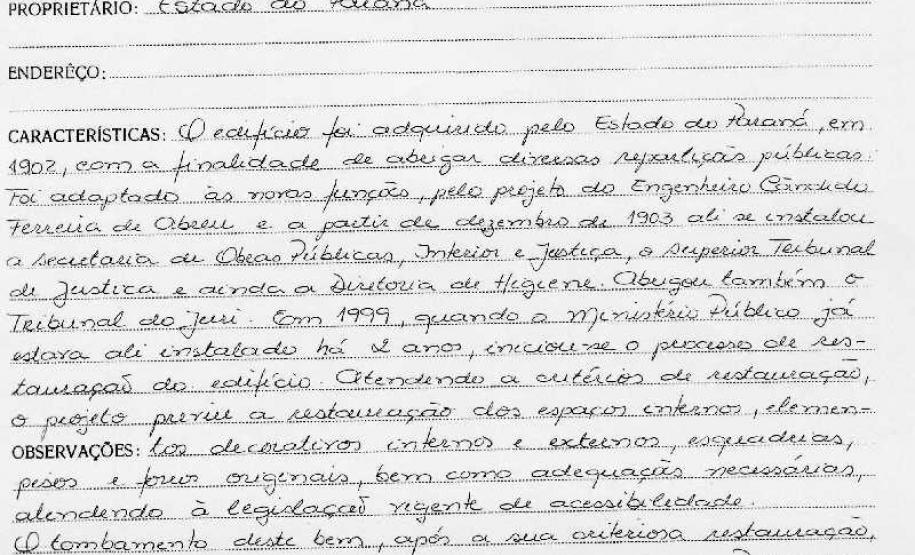 PROPRIETÁRIO: Estado do Paraná
ENDERÊÇO:
CARACTERÍSTICAS: O edifício foi adquirido pelo Estado do Paraná, em
1902, com a finalidade de abrigar diversas repartições públicas.
Foi adaptado às novas funções, pelo projeto do Engenheiro Cândido
Ferreira de Abreu e a partir de dezembro de 1903 ali se instalou
a secretaria de Obras Públicas, Interior e Justiça, o Superior Tribunal
de Justiça e ainda a Diretoria de Higiene. Abrigou também o
Tribunal do Juri. Em 1999, quando o Ministério Público já
estava ali instalado há 2 anos, iniciou-se o processo de res-
tauração do edifício. Atendendo a critérios de restauração,
o projeto previu a restauração dos espaços internos, elemen-
OBSERVAÇÕES: tos decorativos internos e externos, esquadrias,
pisos e forros originais, bem como adequações necessárias,
atendendo à legislação vigente de acessibilidade.
O tombamento deste bem, após a sua criteriosa restauração,